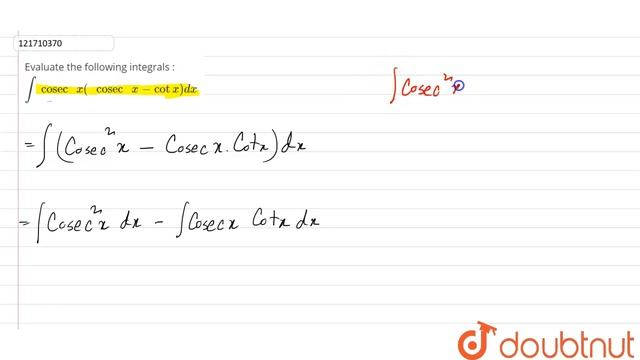 121710370
Evaluate the following integrals :
∫ cosec x( cosec x − cot x)dx
∫ Cosec² x
= ∫ (Cosec² x − Cosec x . Cotx) dx
= ∫ Cosec² x dx − ∫ Cosec x Cotx dx
doubtnut